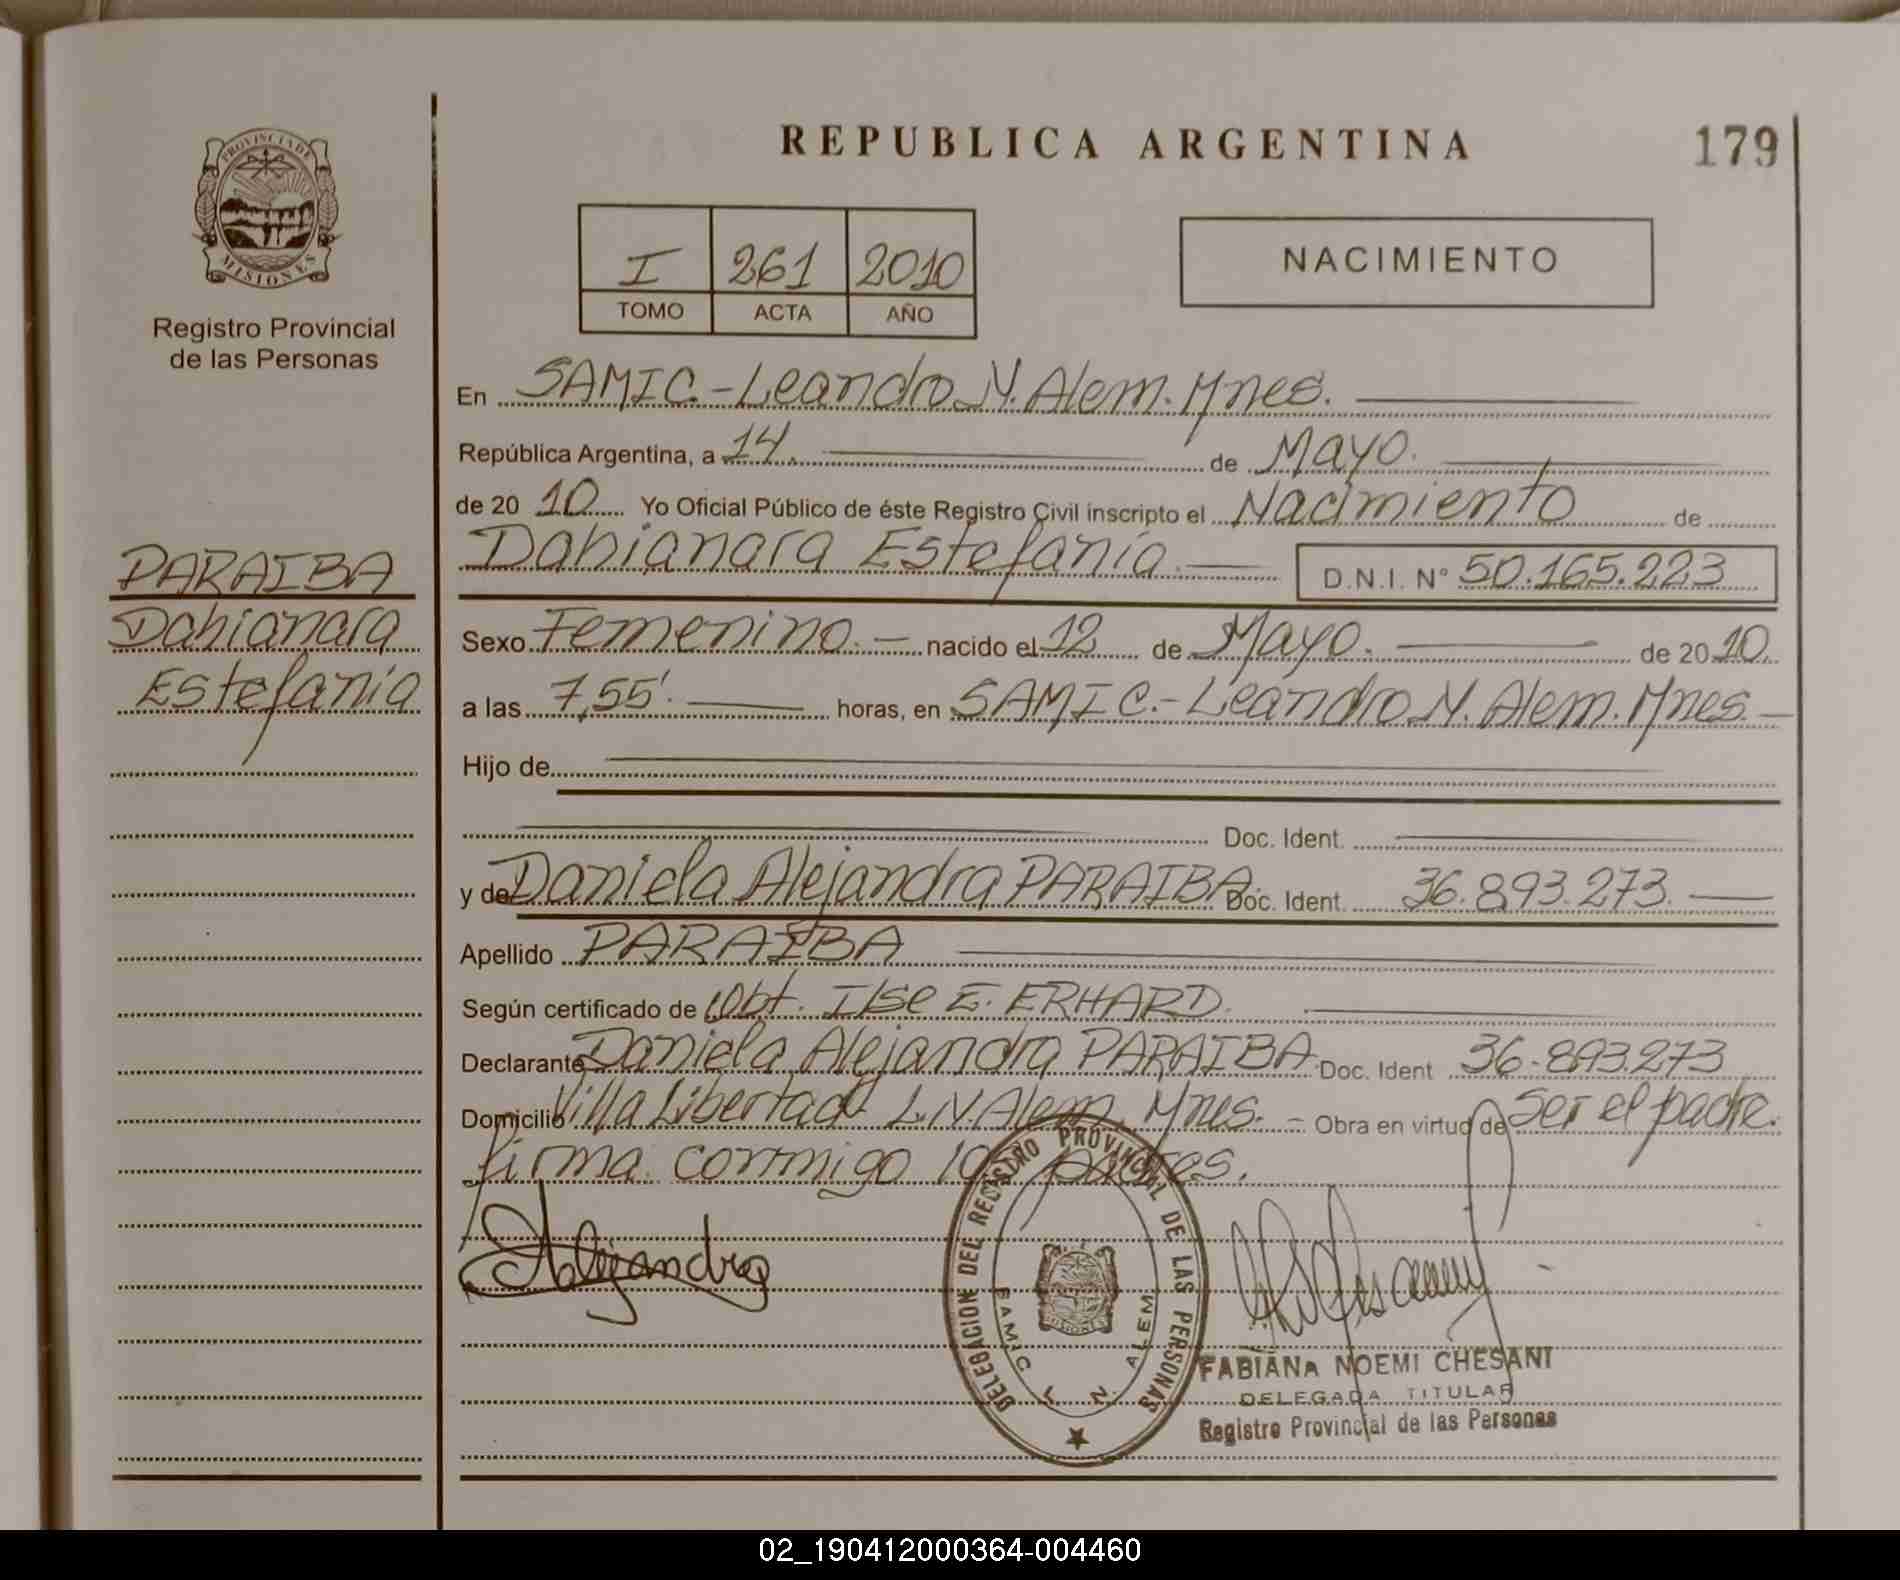 REPUBLICA ARGENTINA
179
PROVINCIA DE
MISIONES
Registro Provincial
de las Personas
I 261 2010
TOMO ACTA AÑO
NACIMIENTO
En SAMIC.-Leandro N. Alem. Mnes.
República Argentina, a 14. de Mayo.
de 20 10 Yo Oficial Público de éste Registro Civil inscripto el Nacimiento de
Dahianara Estefanía. D.N.I. N° 50.165.223
PARAIBA
Dahianara
Estefanía
Sexo Femenino. nacido el 12 de Mayo. de 20 10
a las 7,55'. horas, en SAMIC.-Leandro N. Alem. Mnes.
Hijo de
Doc. Ident.
y de Daniela Alejandra PARAIBA. Doc. Ident. 36.893.273.
Apellido PARAIBA
Según certificado de Obt. Ilse E. ERHARD.
Declarante Daniela Alejandra PARAIBA Doc. Ident 36.893.273
Domicilio Villa Libertad L.N.Alem. Mnes. Obra en virtud de Ser el padre.
firma conmigo los padres.
Alejandra
DELEGACION DEL REGISTRO PROVINCIAL DE LAS PERSONAS
SAMIC L. N. ALEM
MISIONES
FABIANA NOEMI CHESANI
DELEGADA TITULAR
Registro Provincial de las Personas
02_190412000364-004460